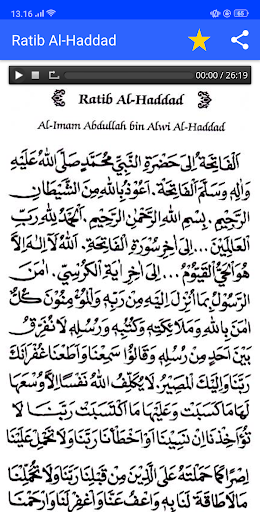 13.16
Ratib Al-Haddad
00:00 / 26:19
Ratib Al-Haddad
Al-Imam Abdullah bin Alwi Al-Haddad
اَلْفَاتِحَةُ إِلَى حَضْرَةِ النَّبِيِّ مُحَمَّدٍ صَلَّى اللهُ عَلَيْهِ
وَاٰلِهِ وَسَلَّمَ اَلْفَاتِحَةَ. اَعُوْذُ بِاللهِ مِنَ الشَّيْطَانِ
الرَّجِيْمِ. بِسْمِ اللهِ الرَّحْمٰنِ الرَّحِيْمِ. اَلْحَمْدُ لِلّٰهِ رَبِّ
الْعَالَمِيْنَ ... إِلَى اٰخِرِ سُوْرَةِ الْفَاتِحَةِ. اَللهُ لَا اِلٰهَ اِلَّا
هُوَ الْحَيُّ الْقَيُّوْمُ ... إِلَى اٰخِرِ اٰيَةِ الْكُرْسِيِّ. اٰمَنَ
الرَّسُوْلُ بِمَا اُنْزِلَ اِلَيْهِ مِنْ رَبِّهِ وَالْمُؤْمِنُوْنَ كُلٌّ
اٰمَنَ بِاللهِ وَمَلَائِكَتِهِ وَكُتُبِهِ وَرُسُلِهِ لَا نُفَرِّقُ
بَيْنَ اَحَدٍ مِنْ رُسُلِهِ وَقَالُوْا سَمِعْنَا وَاَطَعْنَا غُفْرَانَكَ
رَبَّنَا وَاِلَيْكَ الْمَصِيْرُ. لَا يُكَلِّفُ اللهُ نَفْسًا اِلَّا وُسْعَهَا
لَهَا مَا كَسَبَتْ وَعَلَيْهَا مَا اكْتَسَبَتْ رَبَّنَا لَا
تُؤَاخِذْنَا اِنْ نَسِيْنَا اَوْ اَخْطَأْنَا رَبَّنَا وَلَا تَحْمِلْ عَلَيْنَا
اِصْرًا كَمَا حَمَلْتَهُ عَلَى الَّذِيْنَ مِنْ قَبْلِنَا رَبَّنَا وَلَا تُحَمِّلْنَا
مَا لَا طَاقَةَ لَنَا بِهِ وَاعْفُ عَنَّا وَاغْفِرْ لَنَا وَارْحَمْنَا